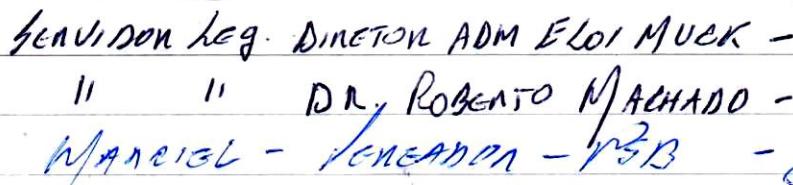 SERVIDOR LEG. DIRETOR ADM ELOI MUCK -
" " DR. ROBERTO MACHADO -
MARCIEL - VEREADOR - PSB -